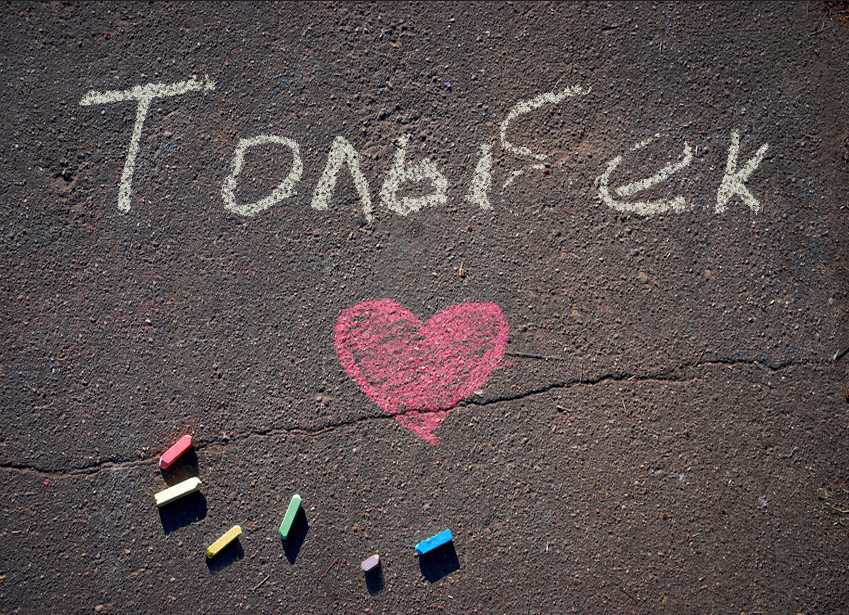 Толыбек